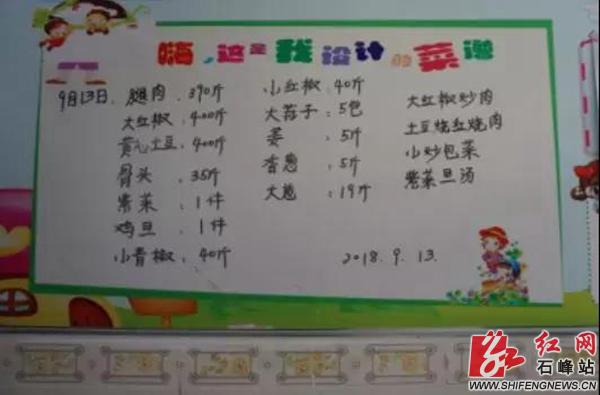 嗨，这是我设计的菜谱
9月13日：腿肉：390斤
大红椒：400斤
黄心土豆：400斤
骨头：35斤
紫菜：1件
鸡旦：1件
小青椒：40斤
小红椒：40斤
大蒜子：5包
姜：5斤
香葱：5斤
大葱：19斤
大红椒炒肉
土豆烧红烧肉
小炒包菜
紫菜旦汤
2018.9.13.
红网
石峰站
WWW.SHIFENGNEWS.CN